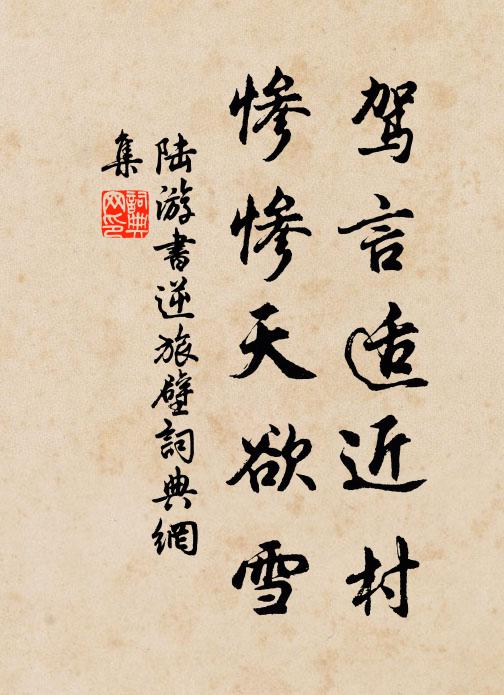 驾言适近村
惨惨天欲雪
陆游書逆旅壁詞典網
集
詞典
网印